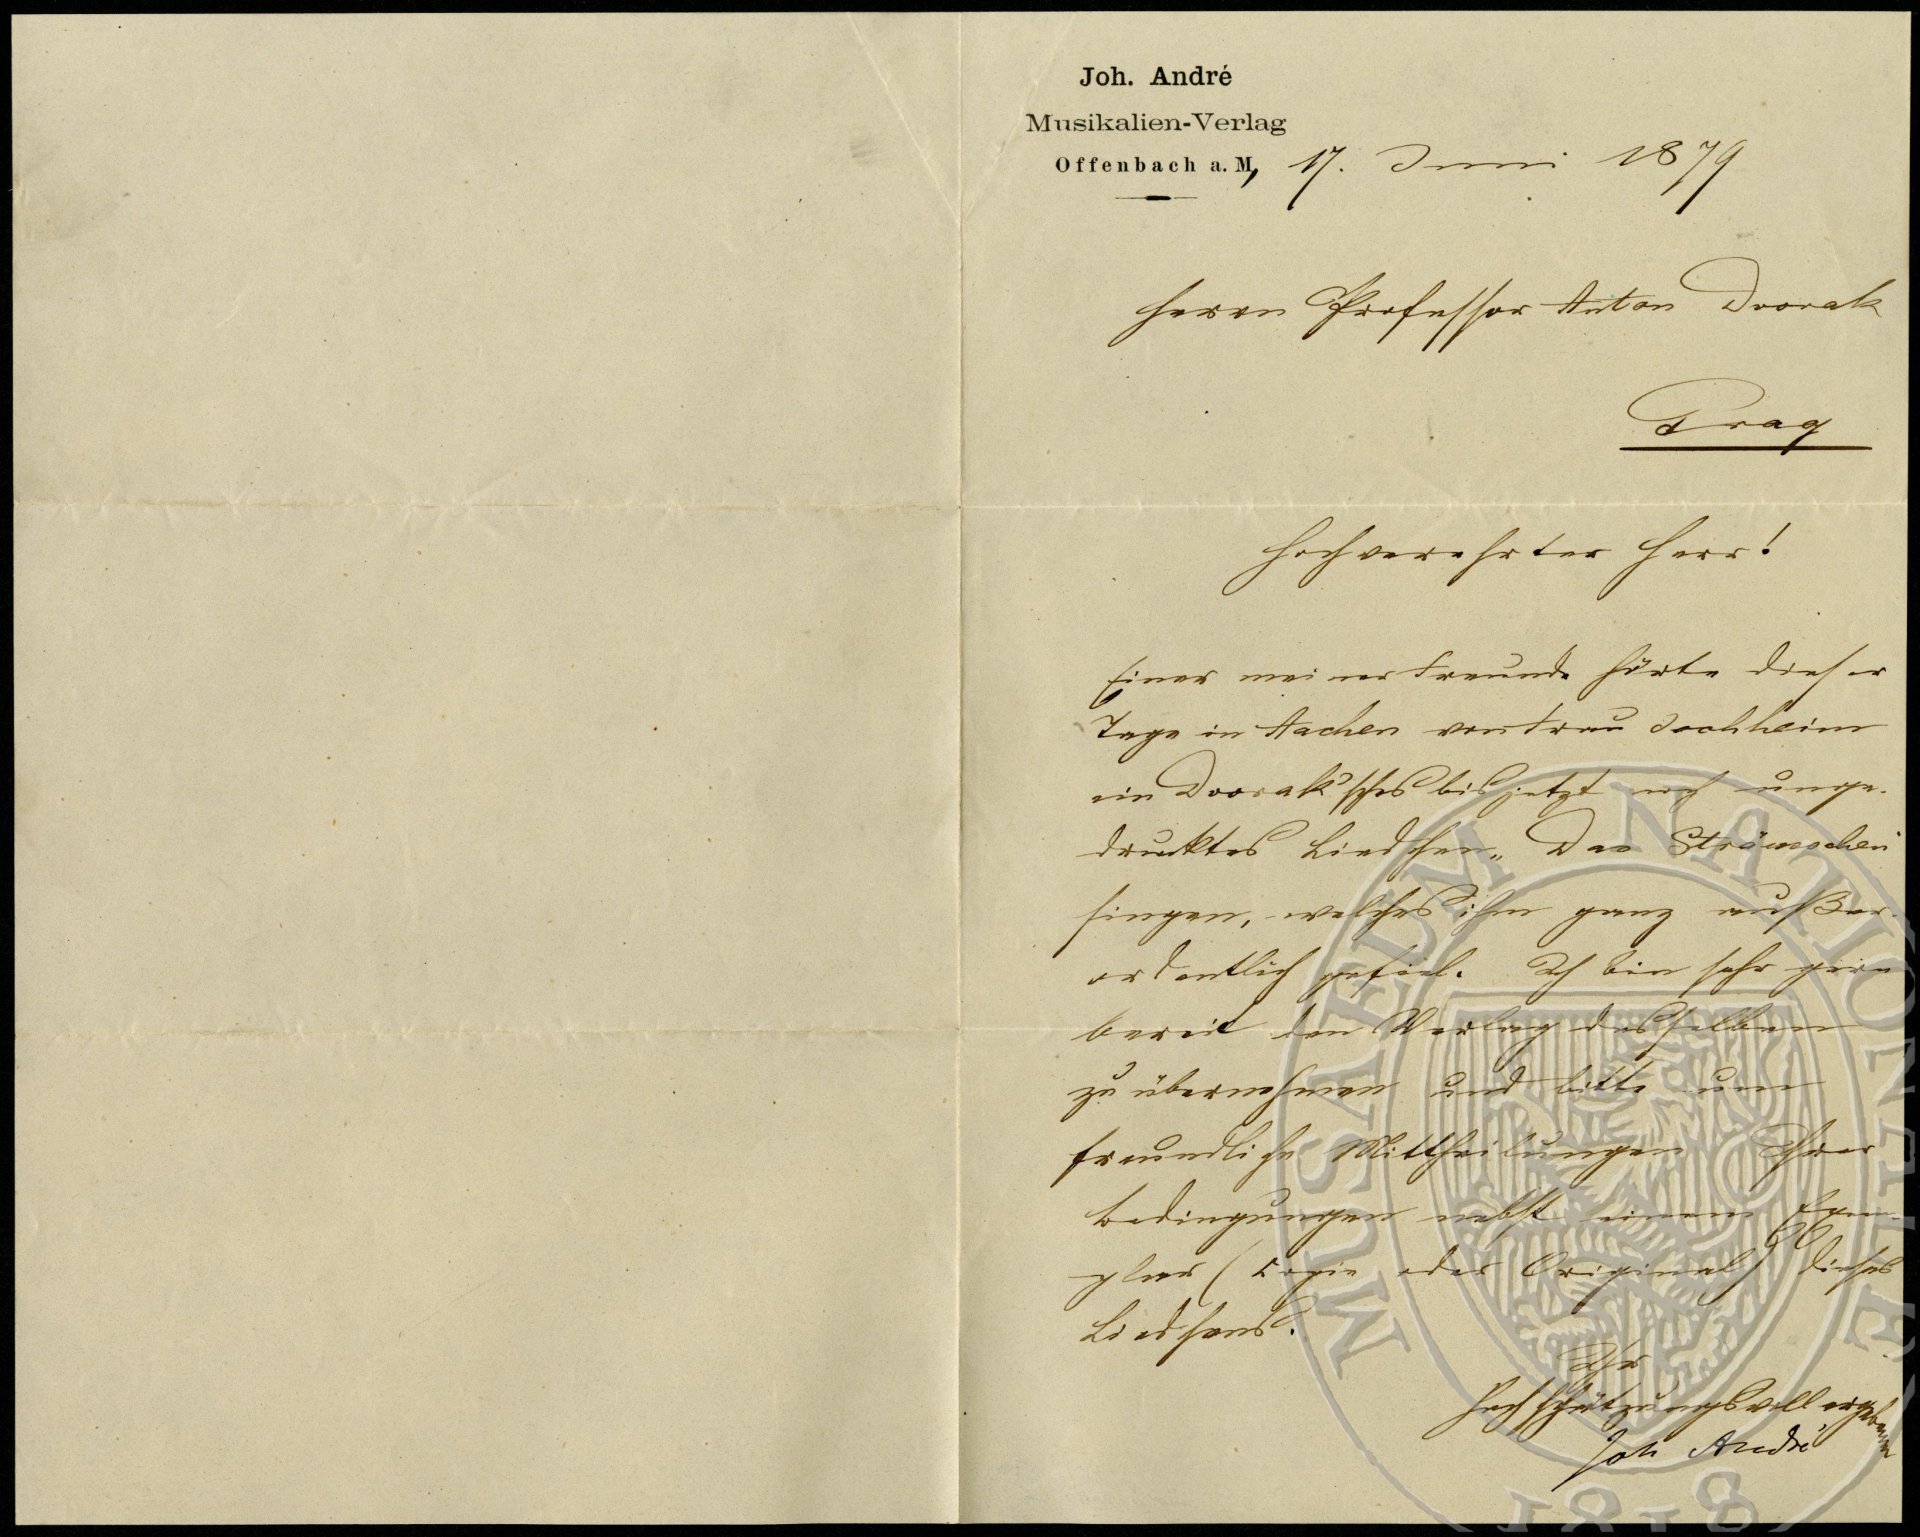 Joh. André
Musikalien-Verlag
Offenbach a. M, 17. Juni 1879
Herrn Professor Anton Dvorak
Prag
Hochverehrter Herr!
Einer meiner Freunde hörte dieser
Tage in Aachen von Frau Joachim
ein Dvorak'sches bis jetzt noch unge-
drucktes Liedchen „Das Sträusschen"
singen, welches ihm ganz außer-
ordentlich gefiel. Ich bin sehr gern
bereit den Verlag desselben
zu übernehmen und bitte um
freundliche Mittheilungen Ihrer
Bedingungen nebst einem Exem-
plar (Copie oder Original) dieses
Liedchens.
Ihr
hochschätzungsvoll ergebener
Joh André
MUSAEUM NATIONALE
1818